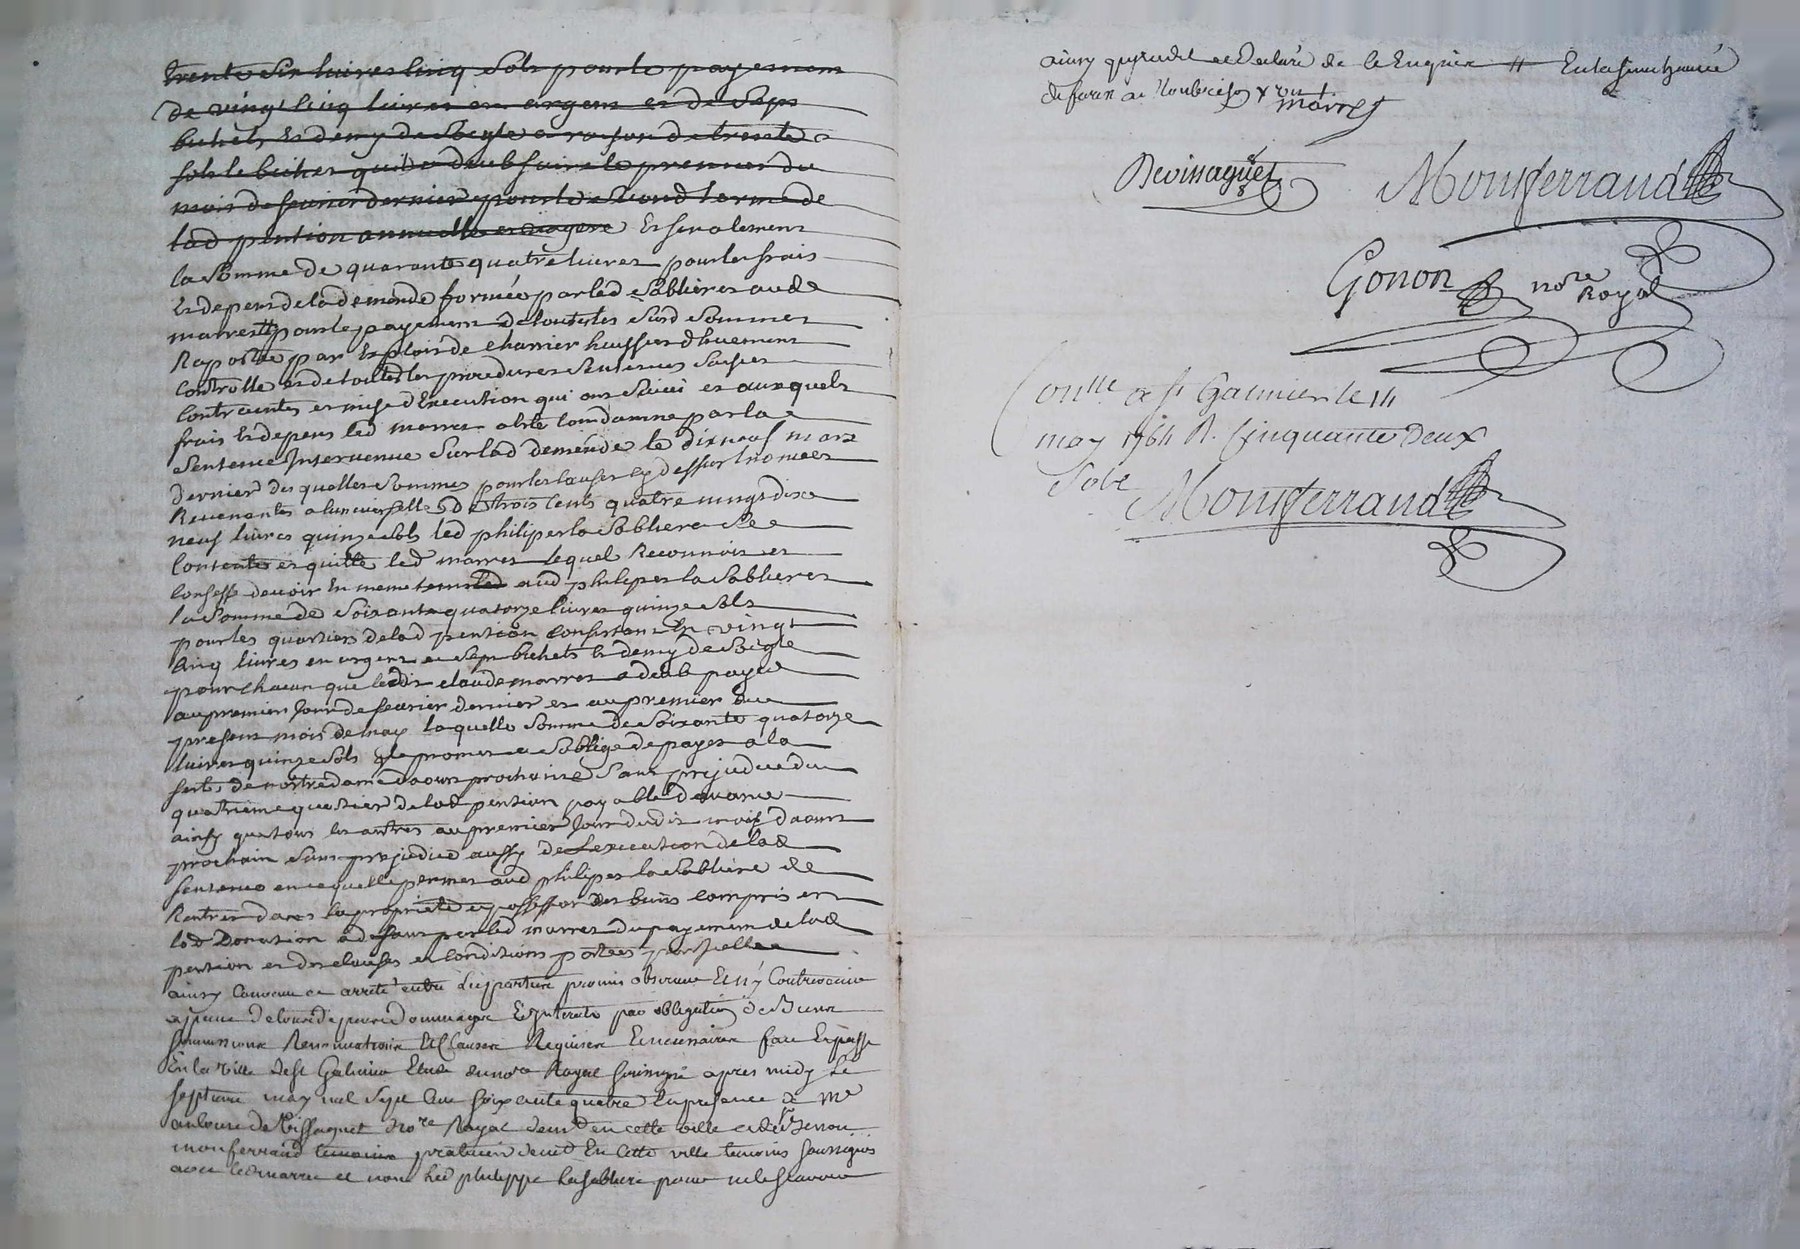 trente six livres cinq sols pour le payement
de vingt cinq livres en argent et de sept
bichets et demy de seigle a raison de trente
sols le bichet qui a deub faire le premier du
mois de fevrier dernier pour le second terme de
lad pention annuelle et viagere Et finalement
la somme de quarante quatre livres pour les frais
et depens de la demande formée par led Sablieres aud
marrest pour le payement de toutes les susd sommes
Raportée par Exploit de charrier huissier dhuement
controllé et de toutes les procedures sentences saisies
contraintes et mise d'Execution qui ont suivi et auxquels
frais et depens led marres a été condamné par la
sentence Intervenue sur lad demende le dixneuf mars
dernier des quelles sommes pour les causes cy dessus
Revenantes a luniverselle de trois cents quatre vingt dix
neuf livres quinze sols led philipe la Sabliere se
contente et quitte led marres lequel Reconnoit et
confesse devoir en meme tems aud philipe la Sablieres
la somme de soixante quatorze livres quinze sols
pour les quartiers de lad pention consistant en vingt
cinq livres en argent et sept bichets et demy de seigle
pour chacun que ledit claude marres a deub payer
au premier jour de fevrier dernier et au premier du
present mois de may laquelle somme de soixante quatorze
livres quinze sols il promet et soblige de payer a la
feste de nostre dame daoust prochaine sans prejudice du
quatrieme quartier de lad pention payable davance
ainsy que tous les autres au premier jour dudit mois daoust
prochain sans prejudice aussy de Lexecution de lad
sentence en ce quelle permet aud philipe la Sabliere de
Rentrer dans la proprieté et possession des biens compris en
lad Donation a deffaut par led marres du payement de lad
pention et des clauses et conditions portées par Icelle
ainsy convenu et arreté entre les parties promis observer Et ny Contrevenir
a peine de tous depens dommages Et Interets par obligation de Biens
soumissions Renonciations Et Clauses Requises Et necessaires fait Et passé
En la ville de St Galmier Etude du nore Royal soussigné apres midy Le
septieme may mil sept cent soixante quatre En presence de Me
antoine de Vissaguet nore Royal demt en cette ville et de Sr
monferrand praticien demt En Cette ville temoins soussignés
avec led marres et non led philippe la Sabliere pour ne le scavoir
ainsy quil a dit et Declaré de ce Enquis
marrest
Devissaguet
Monsferrand
Gonon nore
Royal
Conlle a St Galmier le 14
may 1764 R. Cinquante Deux
sols
Monsferrand